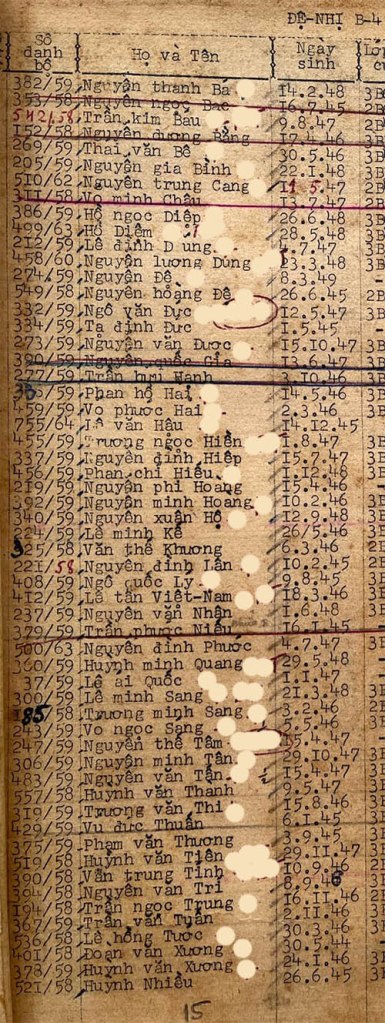 ĐỆ-NHỊ B-4
Số danh bồ Họ và Tên Ngày sinh
382/59 Nguyễn thanh Bá 14.2.48 3B
353/58 Nguyễn ngọc Bac 16.7.45 2B
542/58 Trần kim Bau 9.8.47 2B
152/58 Nguyễn dương Bằng 17.4.46 3B
269/59 Thai văn Bê 30.5.46 3B
205/59 Nguyễn gia Bình 22.1.48 3B
510/62 Nguyễn trung Cang 11.5.47 2B
311/58 Vo minh Châu 13.7.47 2B
386/59 Hồ ngọc Diệp 26.6.48 3B
499/63 Hồ Diêm 28.5.48 3B
212/59 Lê đình Dung .7.47 3B
458/60 Nguyễn lương Dũng 23.3.48 3B
274.59 Nguyễn Đê 8.3.49 -
549/58 Nguyễn hoàng Đê 26.6.45 2B
332/59 Ngô văn Đực 12.5.47 3B
334/59 Ta đình Đưc 1.5.45 -
273/59 Nguyễn văn Dươc 15.10.47 3B
390/59 Nguyễn quốc Gia 13.6.47 3B
277/59 Trần hưu Hanh 3.10.46 3B
/59 Phan hồ Hai 14.5.46 3B
459/59 Vo phước Hai 2.3.46 3B
755/64 Lê văn Hâu 14.12.45
455/59 Trương ngọc Hiền 1.8.47 3B
337/59 Nguyễn đình Hiêp 15.7.47 3B
456/59 Phan chi Hiêu 1.12.48 3B
219/59 Nguyễn phi Hoang 15.4.46 -
392/59 Nguyễn minh Hoang 10.2.46 3B
340/59 Nguyễn xuân Hồ 12.9.48 3B
224/59 Lê minh Kê 26/5.46 3B
325/58 Văn thê Khương 6.3.46 2B
221/58 Nguyễn đình Lân 10.2.45 3B
408/59 Ngô quốc Ly 9.8.45 3B
412/59 Lê tấn Việt-Nam 18.3.46 3B
237/59 Nguyễn văn Nhân 1.6.48 3B
379/59 Trần phước Niêu 16.1.45
500/63 Nguyễn đình Phước 4.7.47 3B
360/59 Huỳnh minh Quang 29.5.48 3B
37/59 Lê ai Quốc 1.1.47 -
300/59 Lê minh Sang 21.3.48 3B
/58 Trương minh Sang 3.2.46 3B
243/59 Vo ngọc Sang .5.47
247/59 Nguyễn thê Tâm 15.4.47 3B
306/59 Nguyễn minh Tân 29.10.47 3B
483/59 Nguyễn văn Tân 15.4.47 3B
557/58 Huỳnh văn Thanh 9.5.47 3B
319/59 Trương văn Thi 15.8.46 3B
429/59 Vu đưc Thuân 6.1.45 -
375/59 Phạm văn Thương 3.9.45 3B
519/58 Huỳnh văn Tiên 29.11.47 3B
390/58 Văn trung Tinh 10.9.46 3B
394/58 Nguyễn văn Tri 8.9.4
194/58 Trần ngọc Trung 16.11.46 2B
367/59 Trần văn Tuân 2.11.46 3B
536/58 Lê hồng Tươc 30.3.44 -
401/58 Đoạn văn Xương 24.1.46 3B
378/59 Huỳnh văn Xương 26.6.45 3B
521/58 Huỳnh Nhiêu
15